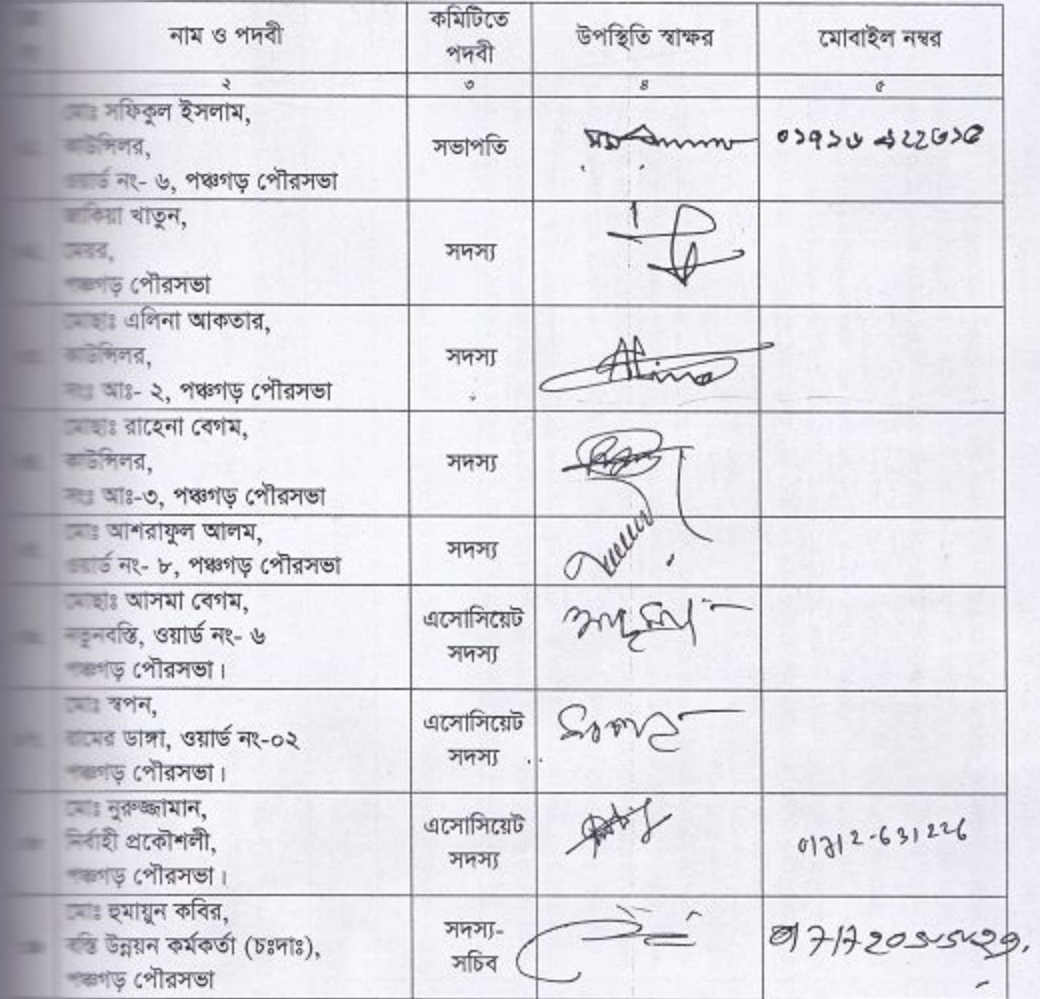 নাম ও পদবী
কমিটিতে পদবী
উপস্থিতি স্বাক্ষর
মোবাইল নম্বর
২
৩
৪
৫
মোঃ সফিকুল ইসলাম,
কাউন্সিলর,
ওয়ার্ড নং- ৬, পঞ্চগড় পৌরসভা
সভাপতি
জাকিয়া খাতুন,
মেয়র,
পঞ্চগড় পৌরসভা
সদস্য
মোছাঃ এলিনা আকতার,
কাউন্সিলর,
সংঃ আঃ- ২, পঞ্চগড় পৌরসভা
সদস্য
Alina
মোছাঃ রাহেনা বেগম,
কাউন্সিলর,
সংঃ আঃ-৩, পঞ্চগড় পৌরসভা
সদস্য
মোঃ আশরাফুল আলম,
ওয়ার্ড নং- ৮, পঞ্চগড় পৌরসভা
সদস্য
মোছাঃ আসমা বেগম,
নতুনবস্তি, ওয়ার্ড নং- ৬
পঞ্চগড় পৌরসভা।
এসোসিয়েট
সদস্য
মোঃ স্বপন,
রামের ডাঙ্গা, ওয়ার্ড নং-০২
পঞ্চগড় পৌরসভা।
এসোসিয়েট
সদস্য
মোঃ নুরুজ্জামান,
নির্বাহী প্রকৌশলী,
পঞ্চগড় পৌরসভা।
এসোসিয়েট
সদস্য
01712-631226
মোঃ হুমায়ুন কবির,
বস্তি উন্নয়ন কর্মকর্তা (চঃদাঃ),
পঞ্চগড় পৌরসভা
সদস্য-
সচিব